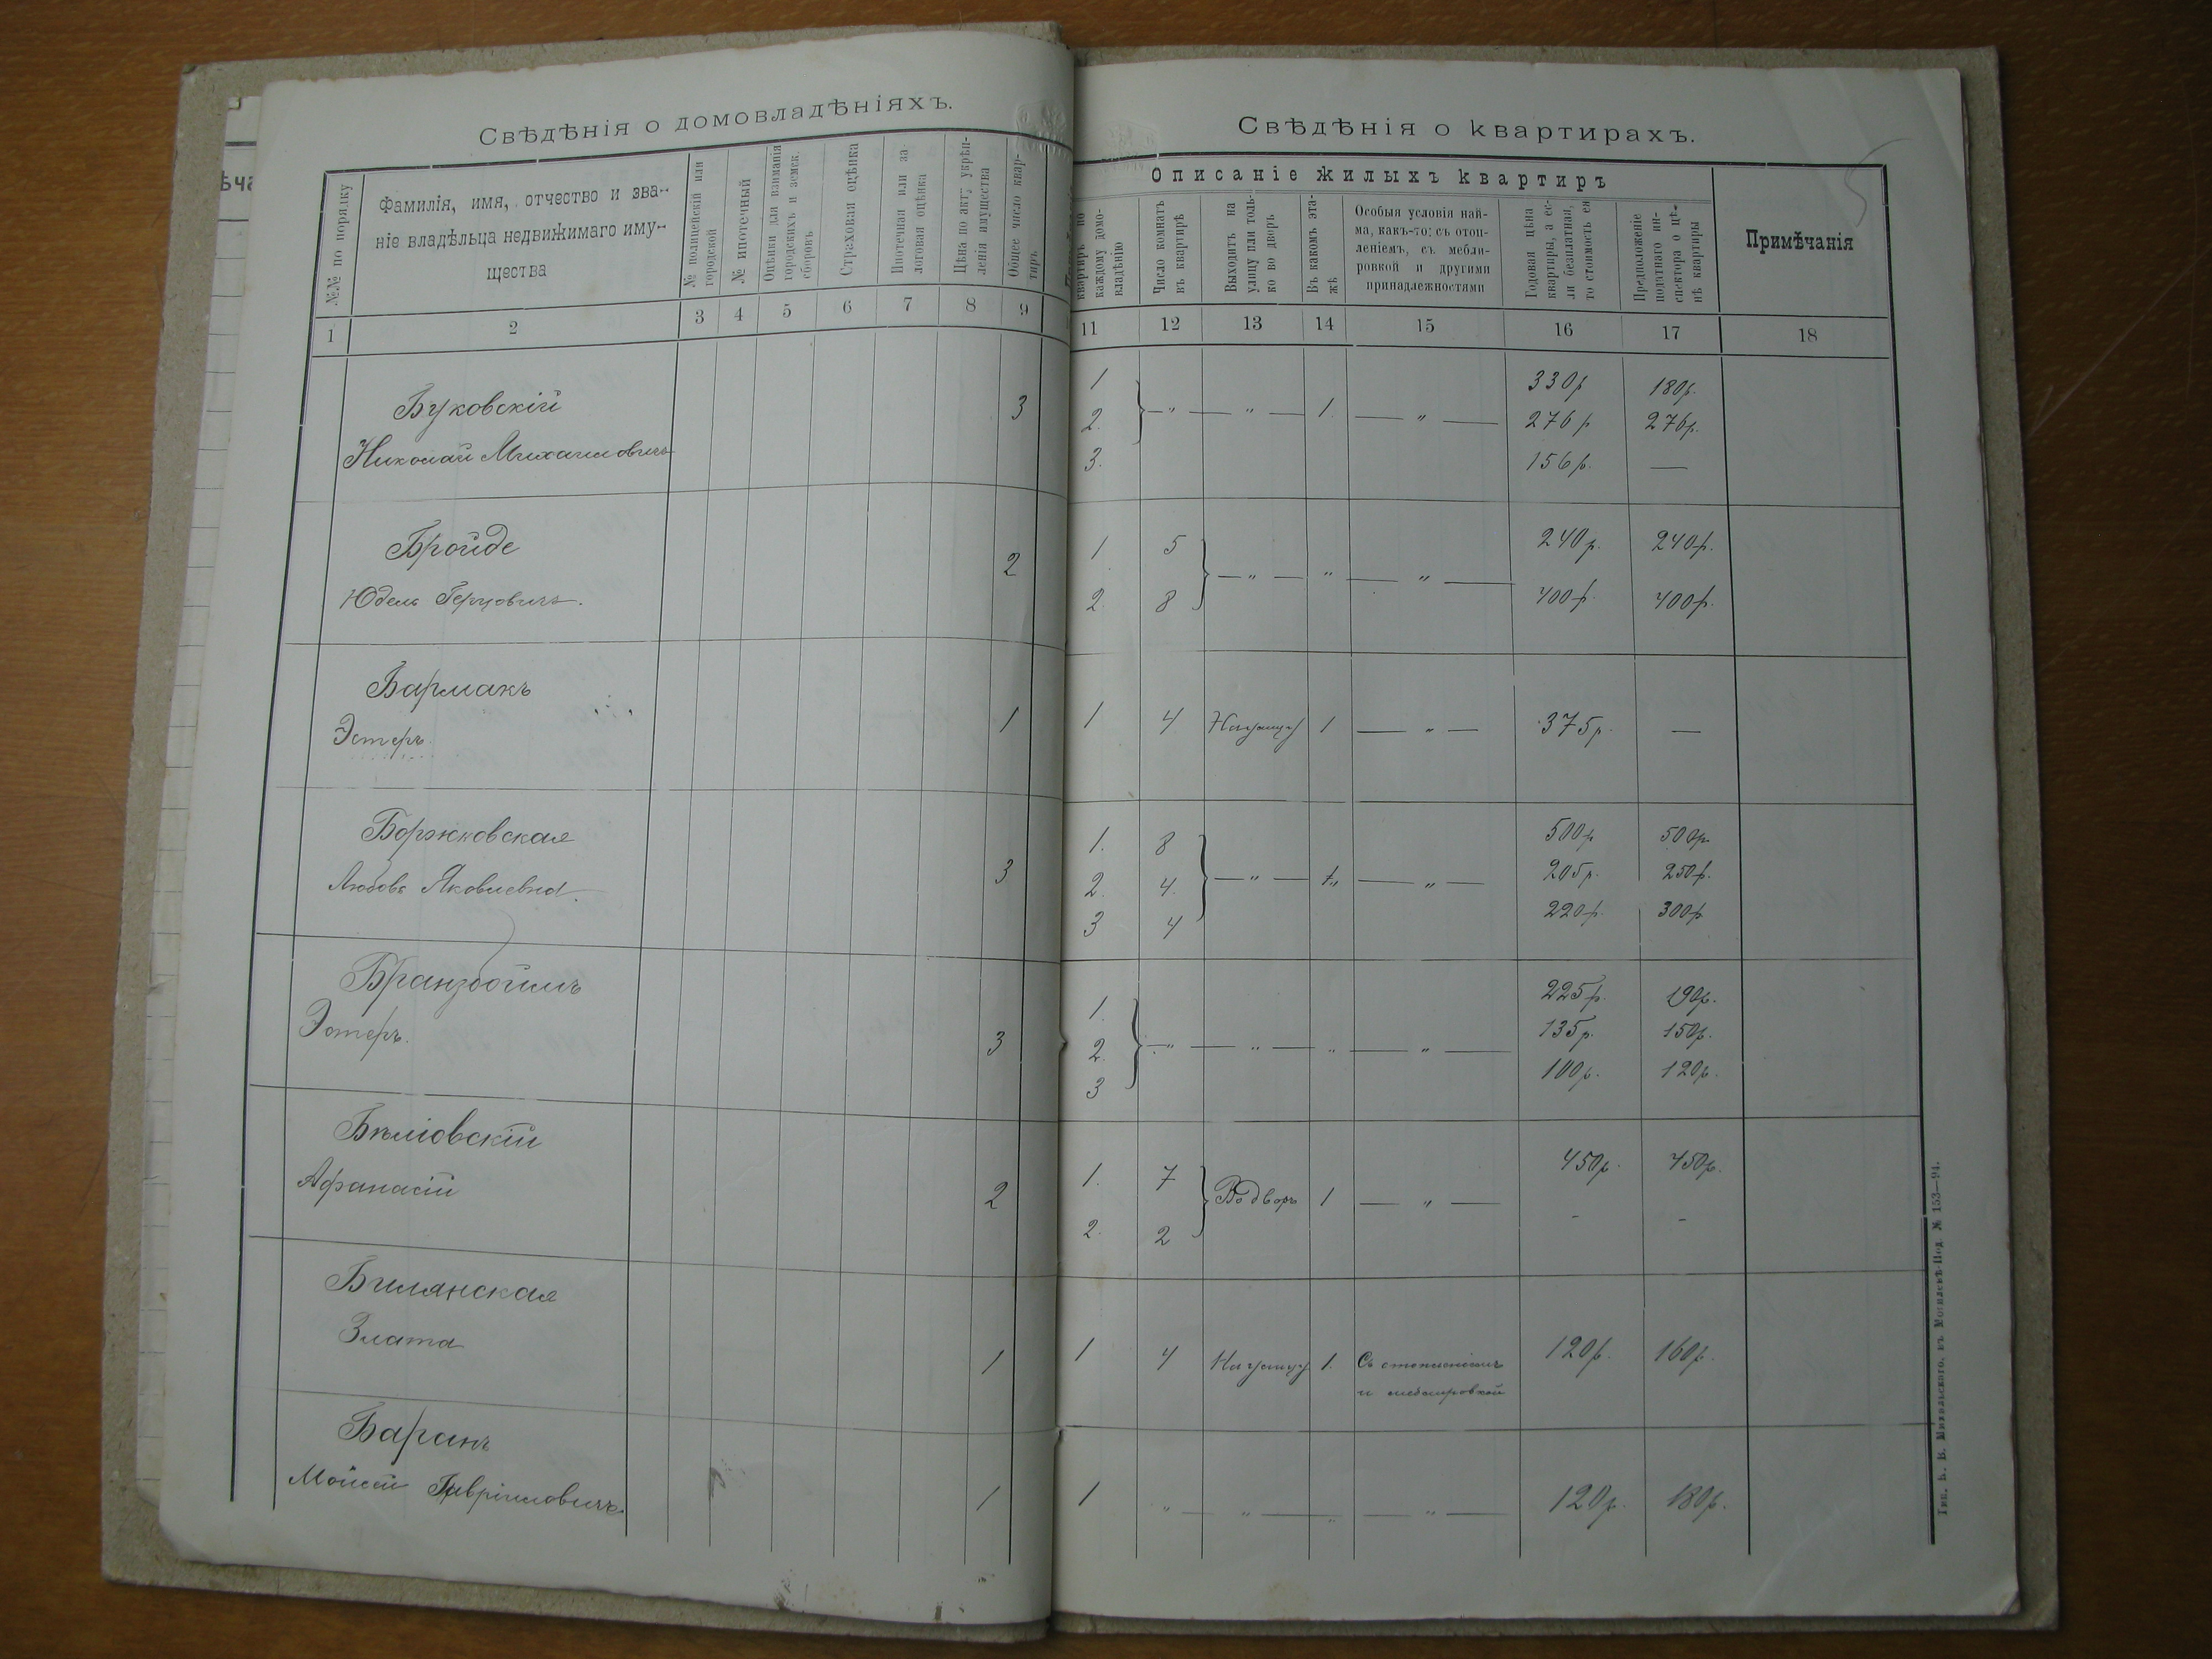 Свѣдѣнія о домовладѣніяхъ.
№№ по порядку
Фамилія, имя, отчество и зва-
ніе владѣльца недвижимаго иму-
щества
№ полицейскій или
городской
№ ипотечный
Оцѣнки для взиманія
городскихъ и земск.
сборовъ
Страховая оцѣнка
Ипотечная или за
логовая оцѣнка
Цѣна по акту укрѣп-
ленія имущества
Общее число квар-
тиръ
1 2 3 4 5 6 7 8 9
Буковскій 3
Николай Михаиловичъ
Бройде 2
Юдель Герцовичъ.
Бармакъ 1
Эстеръ
Боржковская 3
Любовь Яковлевна.
Бранзбоймъ
Эстеръ. 3
Афанасій 2
Билянская
Злата 1
Баранъ
Мойсей Гавріиловичъ 1
Свѣдѣнія о квартирахъ.
Описаніе жилыхъ квартиръ
квартиръ по
каждому домо-
владѣнію
Число комнатъ
въ квартирѣ
Выходитъ на
улицу или толь-
ко во дворъ
Въ какомъ эта-
жѣ
Особыя условія най-
ма, какъ-то: съ отоп-
леніемъ, съ мебли-
ровкой и другими
принадлежностями
Годовая цѣна
квартиры, а ес-
ли безплатная,
то стоимость ея
Предположеніе
податнаго ин-
спектора о цѣ-
нѣ квартиры
Примѣчанія
11 12 13 14 15 16 17 18
1 330р 180р.
2. — „ — „ — 1. — „ — 276р 276р.
3. 156р. —
1 5 240р. 240р.
— „ — „ — „ —
2. 8 400р. 400р.
1 4 На улицу 1 — „ — 375р. —
1. 8 500р 500р.
2. 4. — „ — „ — „ — 205р. 250р.
3 4 220р. 300р
1. 225р. 190р.
2. — „ — „ — „ — „ — 135р. 150р.
3 100р. 120р.
1. 7 450р. 450р.
Во дворъ 1 — „ —
2. 2 - -
1 4 На улицу 1. Съ отопленіемъ 120р. 160р.
и меблировкой
1 „ — „ — „ — „ — 120р. 180р.
Тип. Б. В. Михальскаго, въ Могилевѣ-Под. № 153—94.